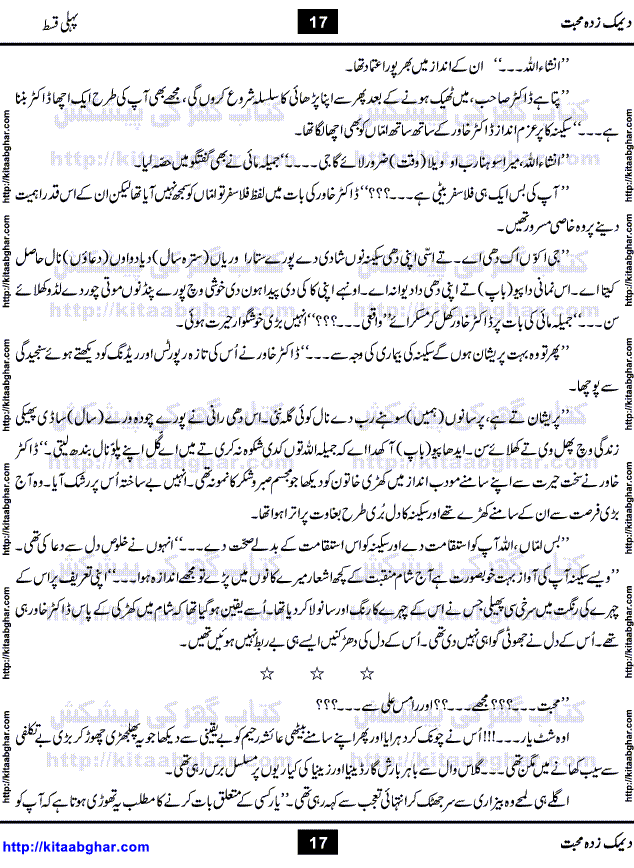 دیمک زدہ محبت 17 پہلی قسط
’’انشاء اللہ۔۔۔‘‘ ان کے انداز میں بھرپور اعتماد تھا۔
’’پتا ہے ڈاکٹر صاحب، میں ٹھیک ہونے کے بعد پھر سے اپنا پڑھائی کا سلسلہ شروع کروں گی، مجھے بھی آپ کی طرح ایک اچھا ڈاکٹر بننا
ہے۔۔۔‘‘ سکینہ کا پرعزم انداز ڈاکٹر خاور کے ساتھ ساتھ امّاں کو بھی اچھا لگا تھا۔
’’انشاء اللہ، میرا سوہنا رب او ویلا (وقت) ضرور لائے گا جی۔۔۔۔‘‘ جمیلہ مائی نے بھی گفتگو میں حصہ لیا۔
’’آپ کی بس ایک ہی فلاسفر بیٹی ہے۔۔۔؟؟؟‘‘ ڈاکٹر خاور کی بات میں لفظ فلاسفر تو امّاں کو سمجھ نہیں آیا تھا لیکن ان کے اس قدر اہمیت
دینے پر وہ خاصی مسرور تھیں۔
’’جی اکوّ اک دھی اے۔ تے اسّی اپنی دھی سکینہ نوں شادی دے پورے ستارا وریاں (سترہ سال) دیا دواوں (دعاؤں) نال حاصل
کیتا اے۔ اس نمانی دا پیو (باپ) تے اپنی دھی دا دیوانہ اے۔ اونہے اپنی کاکی دی پیدا ہون دی خوشی وچ پورے پنڈ نوں موتی چور دے لڈو کھلائے
سن۔۔۔‘‘ جمیلہ مائی کی بات پر ڈاکٹر خاور کھل کر مسکرائے ’’واقعی۔۔۔؟؟؟‘‘ انہیں بڑی خوشگوار حیرت ہوئی۔
’’پھر تو وہ بہت پریشان ہوں گے سکینہ کی بیماری کی وجہ سے۔۔۔‘‘ ڈاکٹر خاور نے اُس کی تازہ رپورٹس اور ریڈنگ کو دیکھتے ہوئے سنجیدگی
سے پوچھا۔
’’پریشان تے ہے، پر سانوں (ہمیں) سوہنے رب دے نال کوئی گلہ نئی۔ اس دھی رانی نے پورے چودہ ورے (سال) ساڈی پھیکی
زندگی وچ پھل وی تے کھلائے سن۔ ایدھا پیو (باپ) آکھدا اے کہ جمیلہ اللہ توں کدی شکوہ نہ کری تے میں اے گل اپنے پلوّ نال بندھ لیتی۔‘‘ ڈاکٹر
خاور نے سخت حیرت سے اپنے سامنے مودب انداز میں کھڑی خاتون کو دیکھا جو مجسم صبر و شکر کا نمونہ تھی۔ انہیں بے ساختہ اُس پر رشک آیا۔ وہ آج
بڑی فرصت سے ان کے سامنے کھڑے تھے اور سکینہ کا دل بُری طرح بغاوت پر اترا ہوا تھا۔
’’بس امّاں، اللہ آپ کو استقامت دے اور سکینہ کو اس استقامت کے بدلے صحت دے۔۔۔‘‘ انہوں نے خلوص دل سے دعا کی تھی۔
’’ویسے سکینہ آپ کی آواز بہت خوبصورت ہے آج شام منقبت کے کچھ اشعار میرے کانوں میں پڑے تو مجھے اندازہ ہوا۔۔۔‘‘ اپنی تعریف پر اس کے
چہرے کی رنگت میں سرخی سی پھیلی جس نے اس کے چہرے کا رنگ اور سانولا کر دیا تھا۔ اُسے یقین ہو گیا تھا کہ شام میں کھڑکی کے پاس ڈاکٹر خاور ہی
تھے۔ اُس کے دل نے جھوٹی گواہی نہیں دی تھی۔ اُس کے دل کی دھڑکنیں ایسے ہی بے ربط نہیں ہوئیں تھیں۔
☆ ☆ ☆
’’محبت۔۔۔؟؟؟ مجھے۔۔۔؟؟ اور رامس علی سے۔۔۔؟؟؟
اوہ شٹ یار۔۔۔!!!! اُس نے چونک کر دہرایا اور پھر اپنے سامنے بیٹھی عائشہ رحیم کو بے یقینی سے دیکھا جو یہ پھلجھڑی چھوڑ کر بڑی بے تکلفی
سے سیب کھانے میں مگن تھی۔۔۔ گلاس وال سے باہر بارش گارڈینیا اور زینیا کی کیاریوں پر مسلسل برس رہی تھی۔
اگلے ہی لمحے وہ بیزاری سے سر جھٹک کر انتہائی تعجب سے کہہ رہی تھی۔ ’’یار کسی کے متعلق بات کرنے کا مطلب یہ تھوڑی ہوتا ہے کہ آپ کو
http://kitaabghar.com 17 دیمک زدہ محبت
کتاب گھر کی پیشکش
http://kitaabghar.com